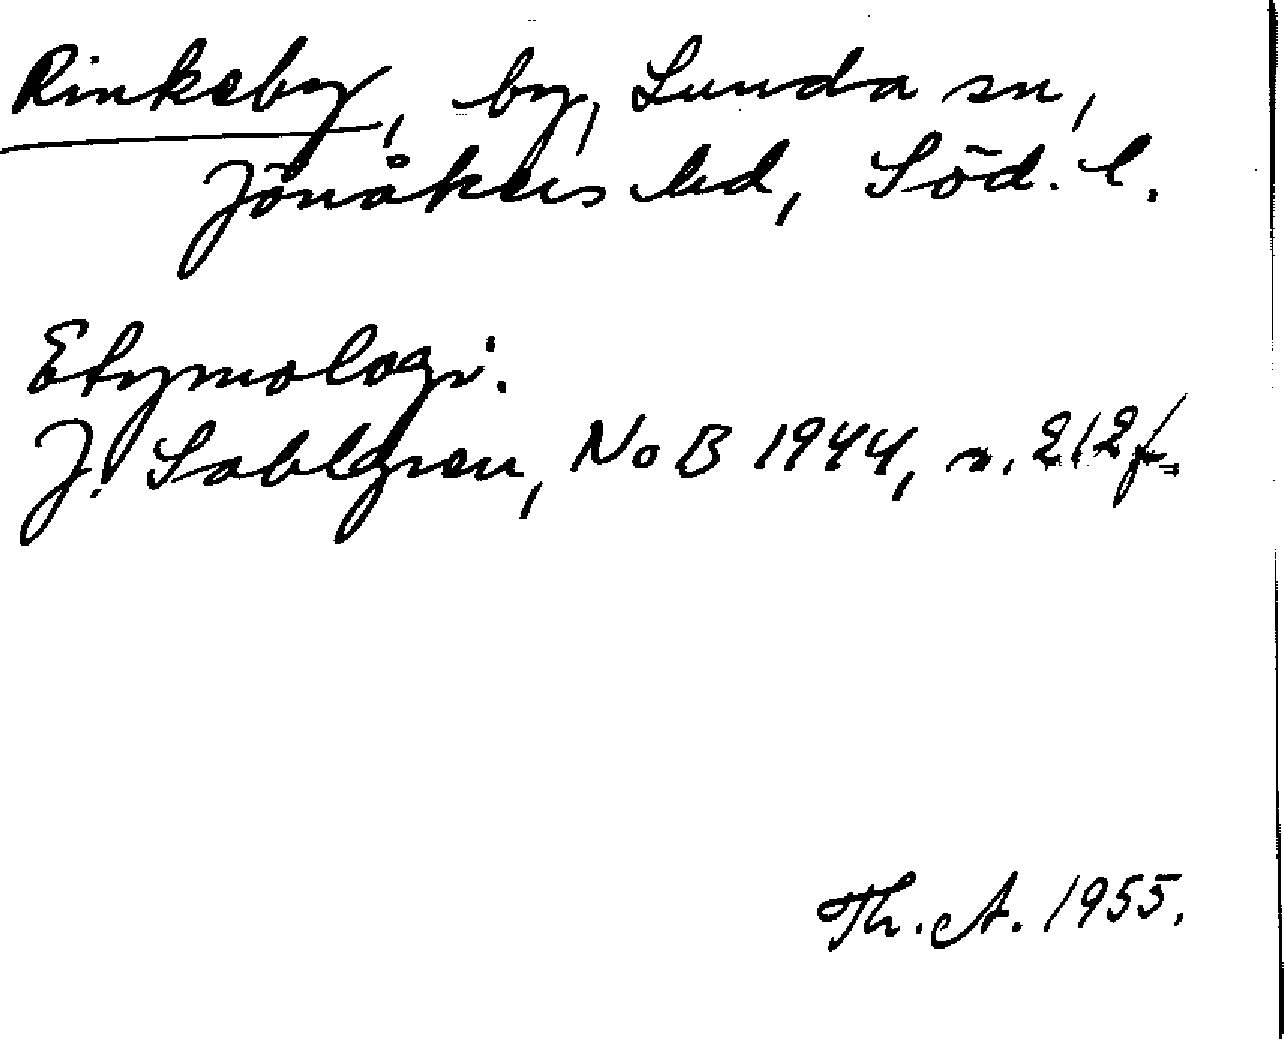 Rinkeby, by, Lunda sn,
Jönåkers hd, Söd. l.
Etymologi:
J. Sahlgren, NoB 1944, s. 212 f.
Th. A. 1955.